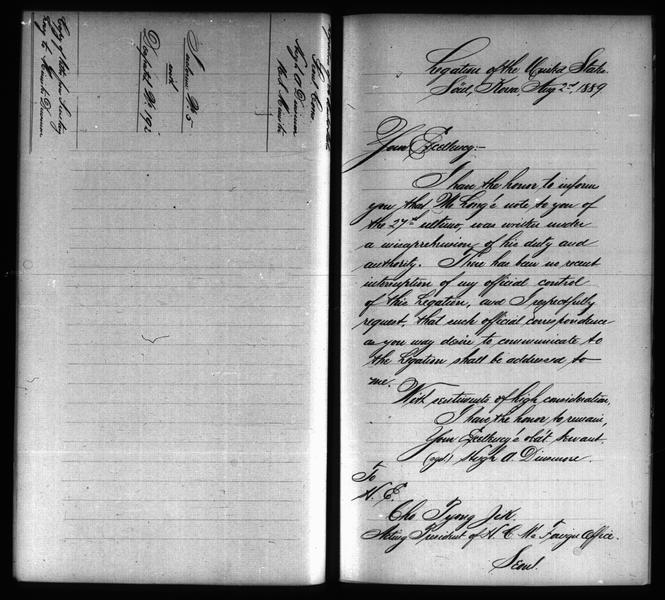 Hugh A. Dinsmore
Inclosure No. 5
and
Dispatch No. 192
Legation of the United States
Söul, Korea, Aug 2nd, 1889
Your Excellency:-
I have the honor to inform
you that Mr Long's note to you of
the 27th ultimo, was written under
a misaprehension of his duty and
authority. There has been no recent
interruption of my official control
of this Legation, and I respectfully
request, that such official correspondence
as you may desire to communicate to
the Legation shall be addressed to
me.
With sentiments of high consideration,
I have the honor to remain,
Your Excellency's obd't servant.
(sgd.) Hugh A. Dinsmore.
To
H. E.
Cho Pyong Jik.
Acting President of H. C. M's Foreign Office.
Seoul.